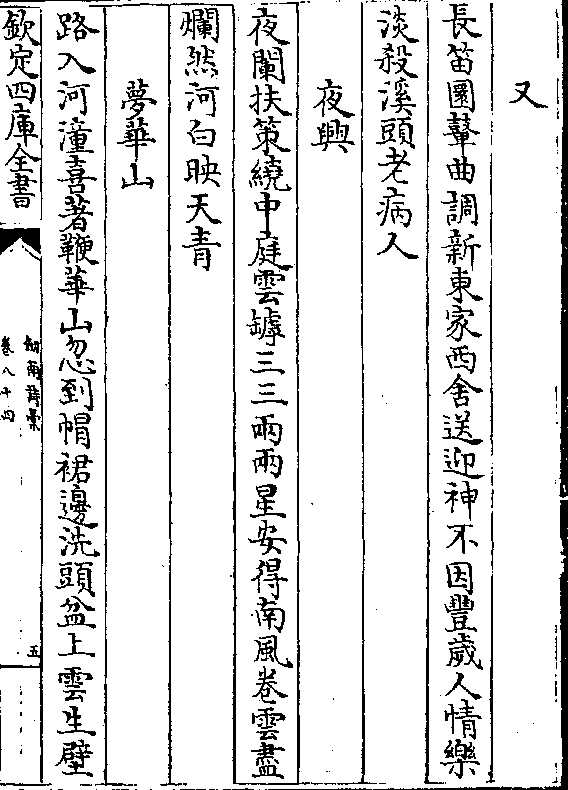 又
長笛圍鼙曲調新東家西舍送迎神不因豐歲人情樂
淡殺溪頭老病人
夜興
夜闌扶策繞中庭雲罅三三兩兩星安得南風卷雲盡
爛然河白映天青
夢華山
路入河潼喜著鞭華山忽到帽裙邊洗頭盆上雲生壁
欽定四庫全書
劍南詩稾
卷八十四
五